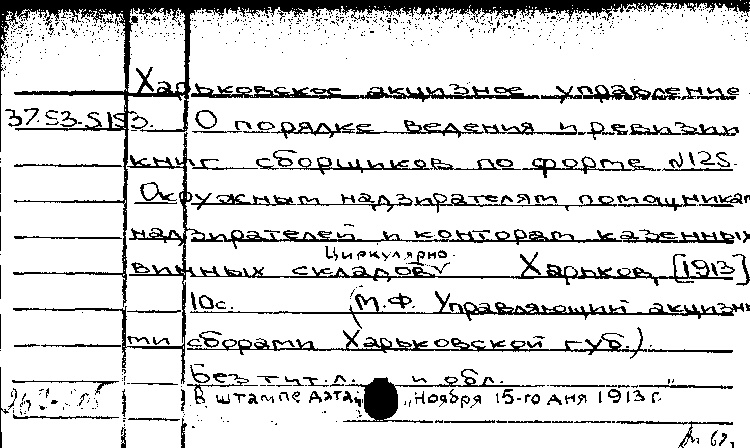 Харьковское акцизное управление
37.53.5153. О порядке ведения и ревизии
книг сборщиков по форме №125.
Окружным надзирателям, помощникам
надзирателей и конторам казенных
Циркулярно.
винных складов. Харьков, [1913]
10с. (М.Ф. Управляющий акцизны
ми сборами Харьковской губ.).
Без тит. л. и обл.
В штампе дата: „Ноября 15-го дня 1913 г."